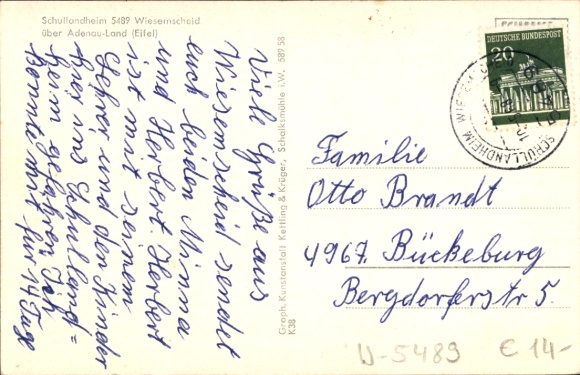 Schullandheim 5489 Wiesemscheid
über Adenau-Land (Eifel)
Viele Grüße aus
Wiesemscheid sendet
euch beiden Minna
und Herbert. Herbert
ist mit seinem
Lehrer und den Kinder
hier ins Schulland=
heim gefahren Ich
konnte mit für 14 Tage
Graph. Kunstanstalt Kettling & Krüger, Schalksmühle i.W. 58958
K38
DEUTSCHE BUNDESPOST
20
SCHULLANDHEIM
Familie
Otto Brandt
4967 Bückeburg
Bergdorferstr 5.
W-5489 € 14-